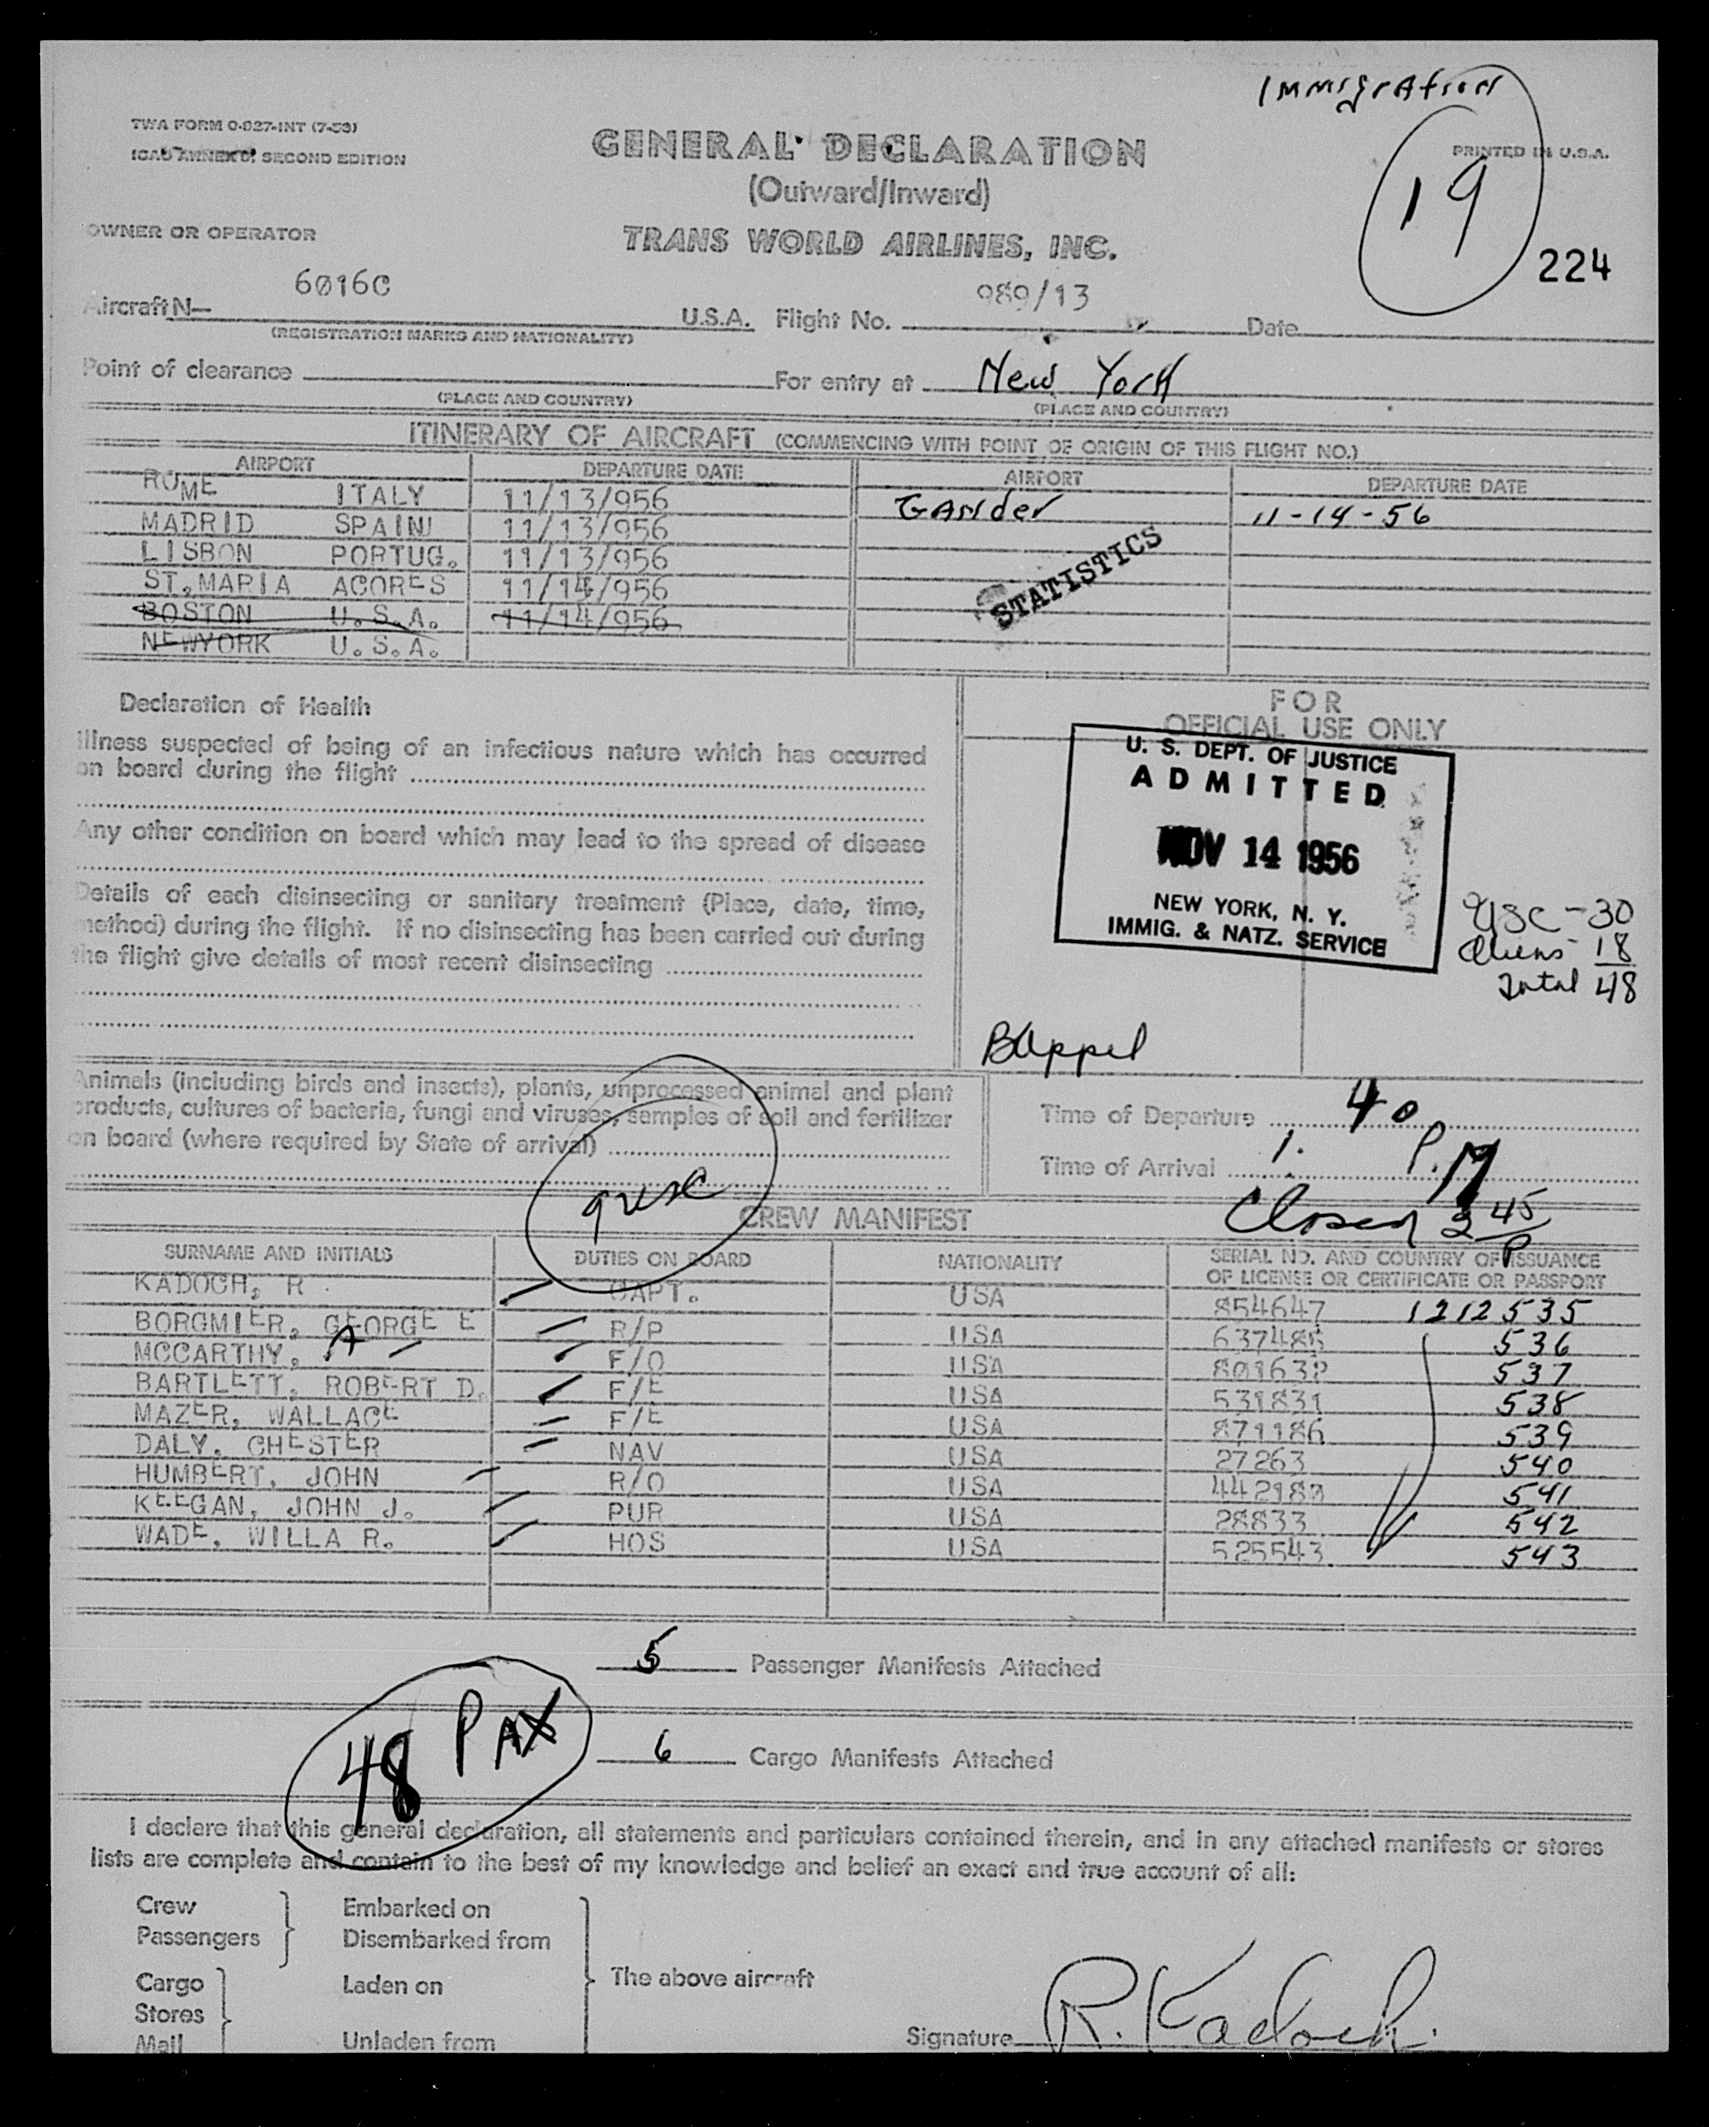 Immigration
TWA FORM 0-927-INT (7-53)
SECOND EDITION
GENERAL DECLARATION
PRINTED IN U.S.A.
(Outward/Inward)
19
OWNER OR OPERATOR
TRANS WORLD AIRLINES, INC.
224
Aircraft N— 6016C U.S.A. Flight No. 989/13 Date
(REGISTRATION MARKS AND NATIONALITY)
Point of clearance For entry at New York
(PLACE AND COUNTRY) (PLACE AND COUNTRY)
ITINERARY OF AIRCRAFT (COMMENCING WITH POINT OF ORIGIN OF THIS FLIGHT NO.)
AIRPORT DEPARTURE DATE AIRPORT DEPARTURE DATE
ROME ITALY 11/13/956 Gander 11-14-56
MADRID SPAIN 11/13/956
LISBON PORTUG. 11/13/956
ST.MARIA ACORES 11/14/956
STATISTICS
BOSTON U.S.A. 11/14/956
NEWYORK U.S.A.
Declaration of Health
Illness suspected of being of an infectious nature which has occurred
on board during the flight
Any other condition on board which may lead to the spread of disease
Details of each disinsecting or sanitary treatment (Place, date, time,
method) during the flight. If no disinsecting has been carried out during
the flight give details of most recent disinsecting
FOR
OFFICIAL USE ONLY
U. S. DEPT. OF JUSTICE
ADMITTED
NOV 14 1956
NEW YORK, N. Y.
IMMIG. & NATZ. SERVICE
USC - 30
Aliens - 18
Total 48
Animals (including birds and insects), plants, unprocessed animal and plant
products, cultures of bacteria, fungi and viruses, samples of soil and fertilizer
on board (where required by State of arrival)
Time of Departure
Time of Arrival 1:40 P.M
Closed 2 45/P
9 USC
CREW MANIFEST
SURNAME AND INITIALS DUTIES ON BOARD NATIONALITY SERIAL NO. AND COUNTRY OF ISSUANCE
OF LICENSE OR CERTIFICATE OR PASSPORT
KADOCH, R. CAPT. USA 854647 1212535
BORGMIER, GEORGE E R/P USA 637485 536
MCCARTHY, A F/O USA 537
BARTLETT, ROBERT D. F/E USA 531831 538
MAZER, WALLACE F/E USA 871186 539
DALY, CHESTER NAV USA 27263 540
HUMBERT, JOHN R/O USA 541
KEEGAN, JOHN J. PUR USA 28833 542
WADE, WILLA R. HOS USA 525543 543
5 Passenger Manifests Attached
48 PAX
6 Cargo Manifests Attached
I declare that this general declaration, all statements and particulars contained therein, and in any attached manifests or stores
lists are complete and contain to the best of my knowledge and belief an exact and true account of all:
Crew Embarked on
Passengers Disembarked from
Cargo Laden on The above aircraft
Stores
Mail Unladen from
Signature R. Kadoch.